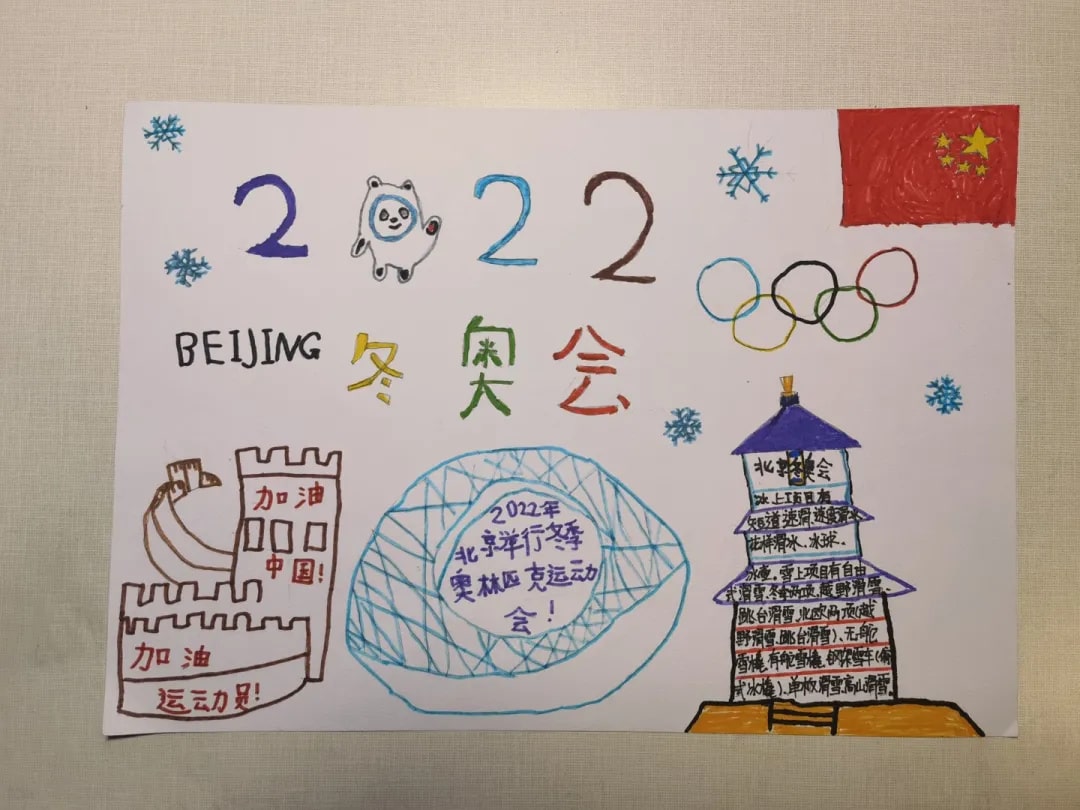 2022
BEIJING 冬奥会
加油
中国!
加油
运动员!
2022年
北京举行冬季
奥林匹克运动
会!
北京冬奥会
冰上项目有
短道速滑、速度滑冰
花样滑冰、冰球、
冰壶,雪上项目有自由
式滑雪、冬季两项、越野滑雪、
跳台滑雪、北欧两项(越
野滑雪、跳台滑雪)、无舵
雪橇、有舵雪橇、钢架雪车(俯
式冰橇)、单板滑雪高山滑雪。